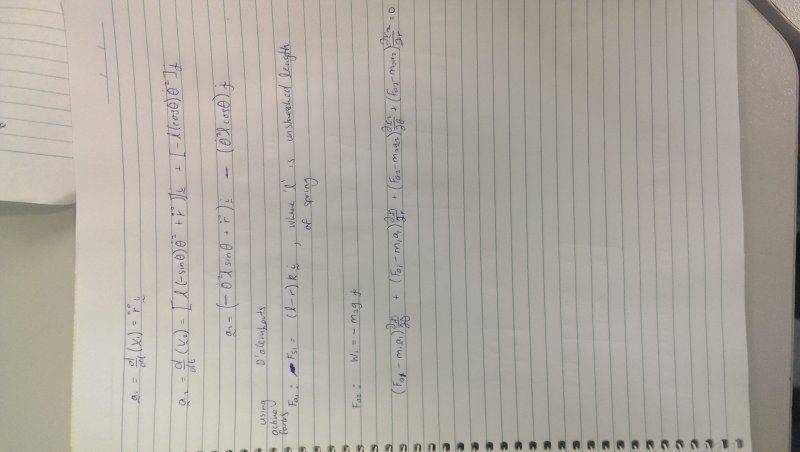 a₁ = d/dt (V₁) = r̈ i
a₂ = d/dt (V₂) = [l(-sinθ)θ̇² + r̈] i + [-l(cosθ)θ̇²] j
a₂ = (-θ̇² l sinθ + r̈) i - (θ̇² l cosθ) j
using D'alemberts
active forces
Fa₁ : Fs₁ = (l-r) k i , where 'l' is unstreached length
of spring
Fa₂ : W₂ = -m₂g j
(Fa₁ - m₁a₁) ∂r₁/∂θ + (Fa₁ - m₁a₁) ∂r₁/∂r + (Fa₂ - m₂a₂) ∂r₂/∂θ + (Fa₂ - m₂a₂) ∂r₂/∂r = 0